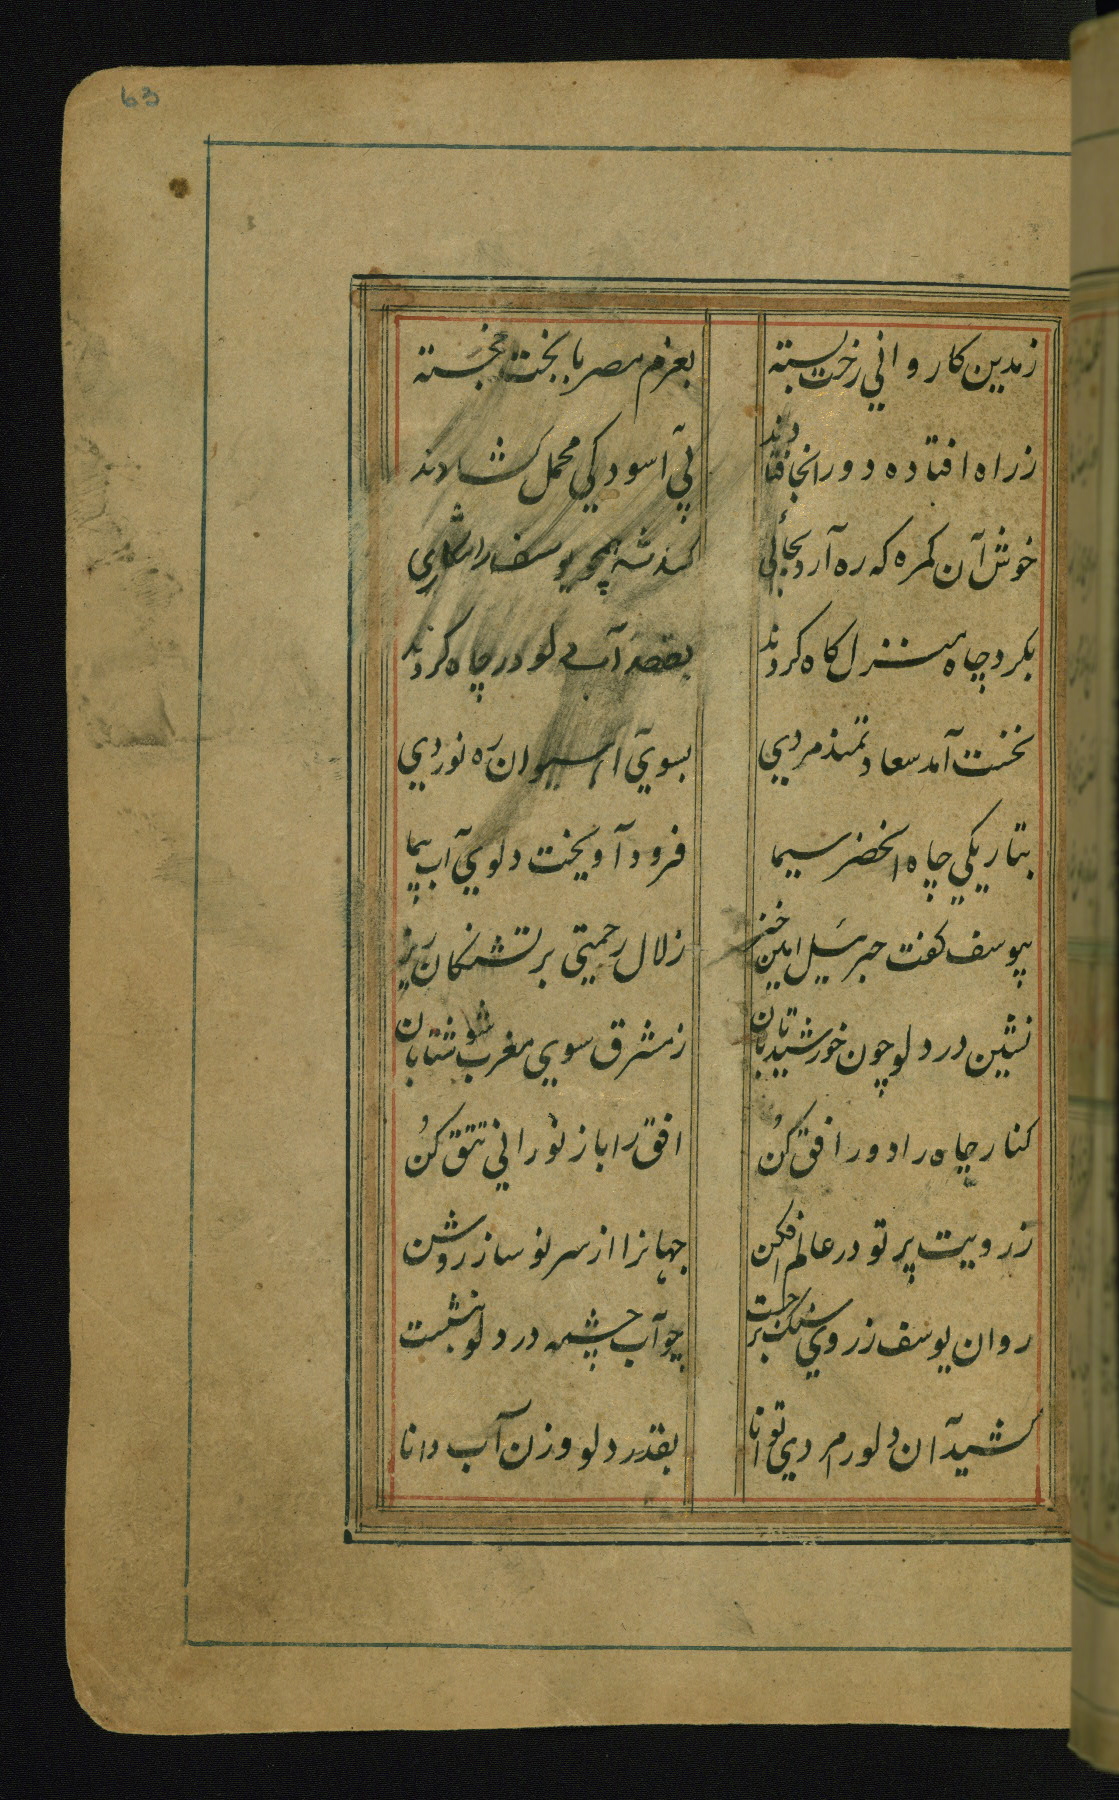 63
زمدین کاروانی رخت بسته بعزم مصر با بخت خجسته
ز راه افتاده دور انجا فتادند پی آسودگی محمل گشادند
خوش آن گمره که ره آرد بجائی یوسف را
بگرد چاه منزلگاه کردند بقصد آب دلو در چاه کردند
نخست آمد سعادتمند مردی بسوی آب حیوان ره نوردی
بتاریکی چاه انخضر سیما فرود آویخت دلوی آب پیما
بیوسف گفت جبرئیل امین خیز زلال رحمتی بر تشنگان ریز
نشین در دلو چون خورشید تابان ز مشرق سوی مغرب شو شتابان
کنار چاه را دور افق کن افق را باز نورانی تتق کن
ز رویت پرتو در عالم افکن جهانرا از سر نو ساز روشن
روان یوسف ز روی سنگ برجست چو آب چشمه در دلو بنشست
کشید آن دلو را مردی توانا بقدر دلو و وزن آب دانا